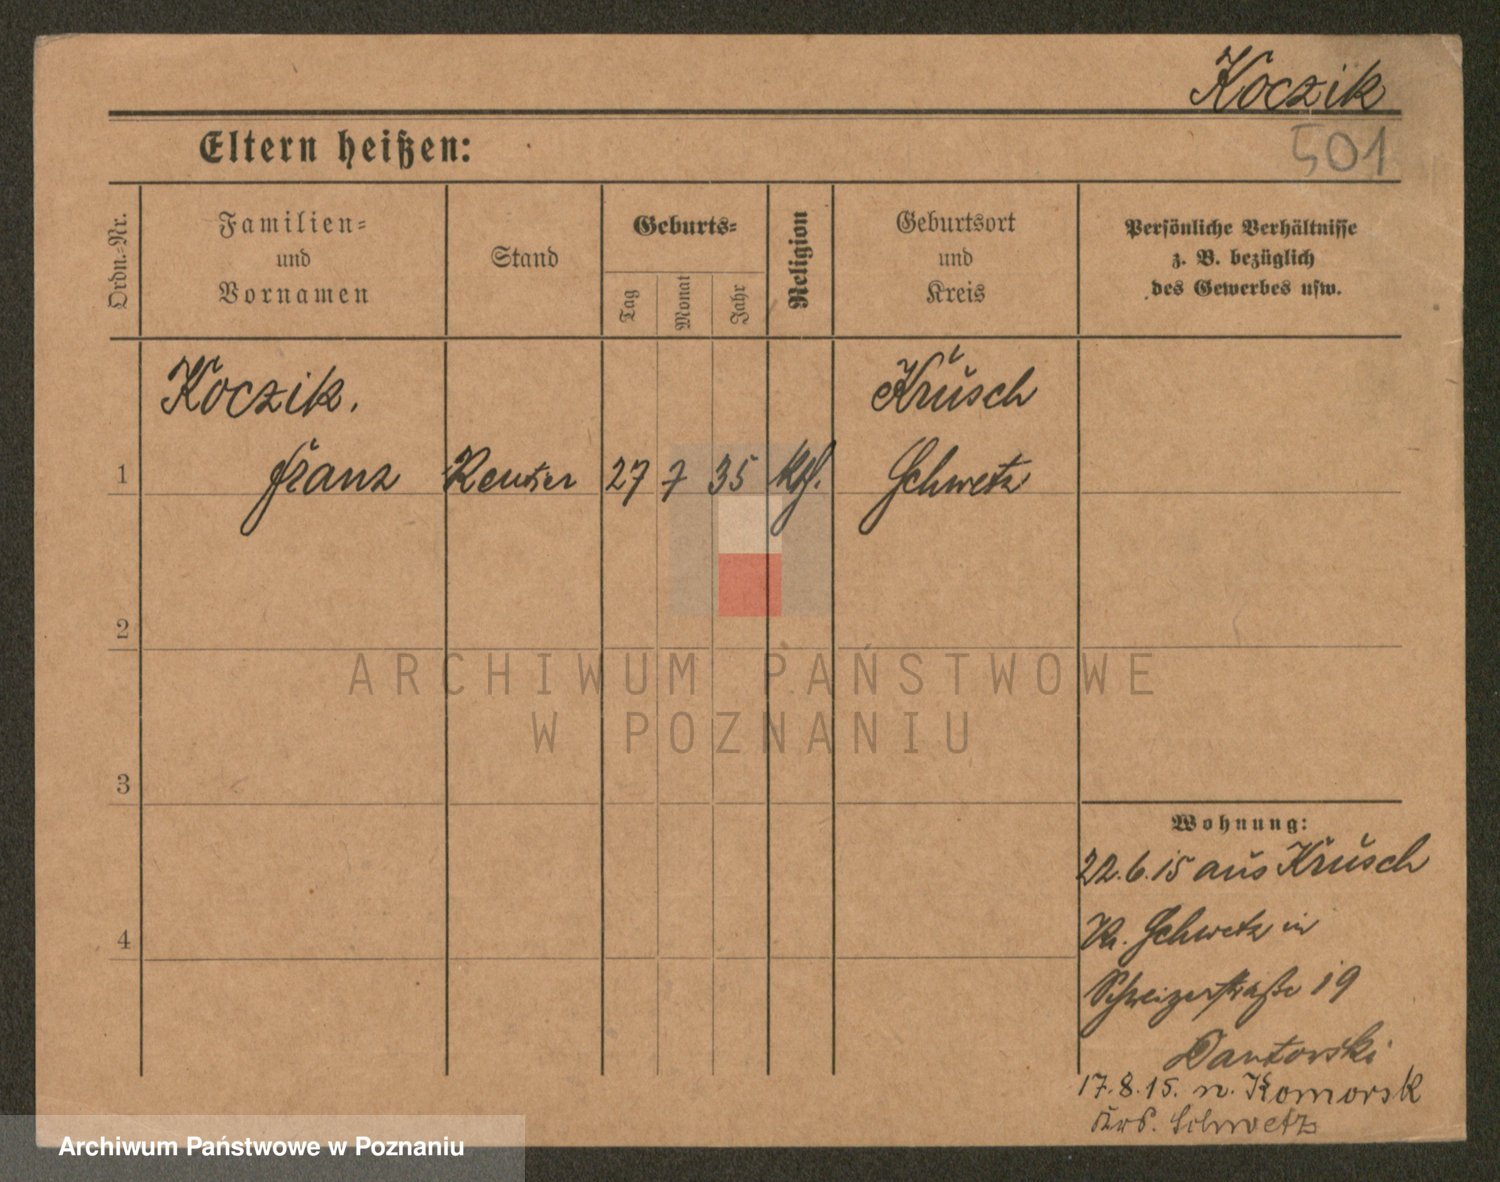 Koczik
501
Eltern heißen:
Ordn.-Nr.
Familien-
und
Vornamen
Stand
Geburts-
Tag
Monat
Jahr
Religion
Geburtsort
und
Kreis
Persönliche Verhältnisse
z. B. bezüglich
des Gewerbes usw.
Koczik.
Krusch
1 Franz Rentier 27 7 35 kth. Schwetz
2
ARCHIWUM PAŃSTWOWE
W POZNANIU
3
Wohnung:
22.6.15 aus Krusch
Kr. Schwetz in
4
19
17.8.15. n. Komorsk
Krs. Schwetz
Archiwum Państwowe w Poznaniu